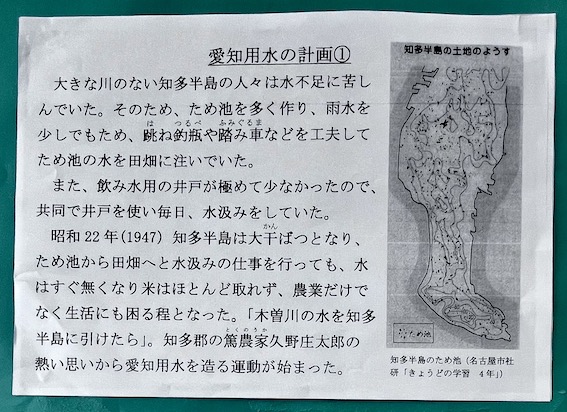 愛知用水の計画①
大きな川のない知多半島の人々は水不足に苦し
んでいた。そのため、ため池を多く作り、雨水を
少しでもため、跳ね釣瓶や踏み車などを工夫して
は つるべ ふみぐるま
ため池の水を田畑に注いでいた。
また、飲み水用の井戸が極めて少なかったので、
共同で井戸を使い毎日、水汲みをしていた。
かん
昭和22年(1947) 知多半島は大干ばつとなり、
ため池から田畑へと水汲みの仕事を行っても、水
はすぐ無くなり米はほとんど取れず、農業だけで
なく生活にも困る程となった。「木曽川の水を知多
とくのうか
半島に引けたら」。知多郡の篤農家久野庄太郎の
熱い思いから愛知用水を造る運動が始まった。
知多半島の土地のようす
ため池
知多半島のため池（名古屋市社
研「きょうどの学習 4年」）